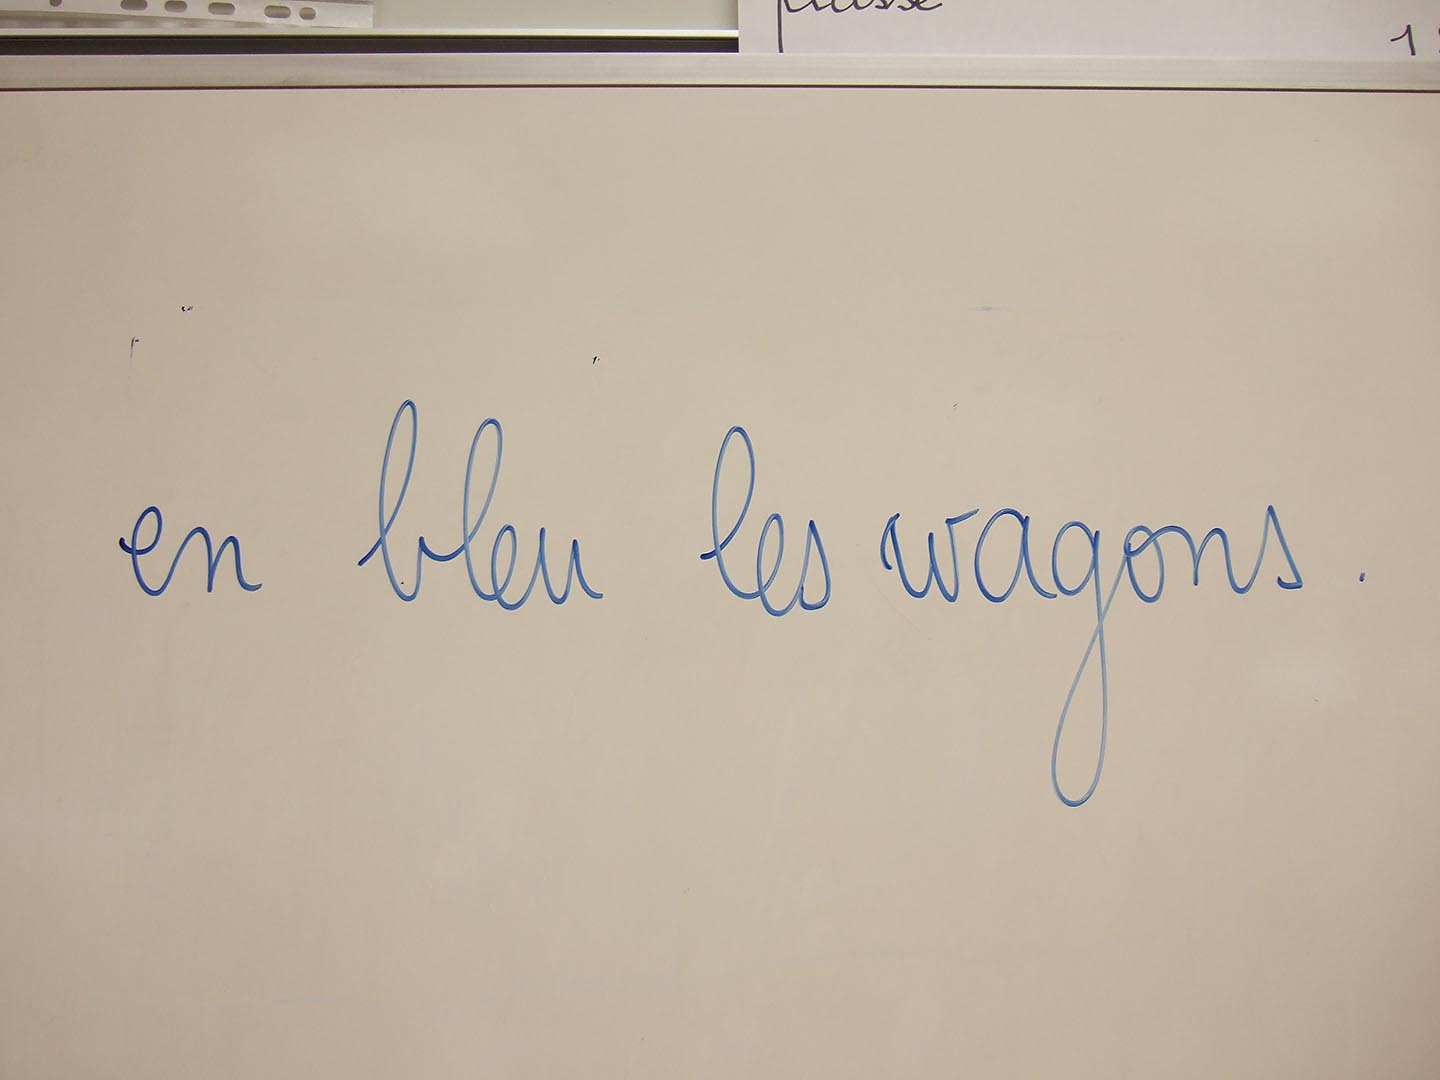 1
en bleu les wagons.